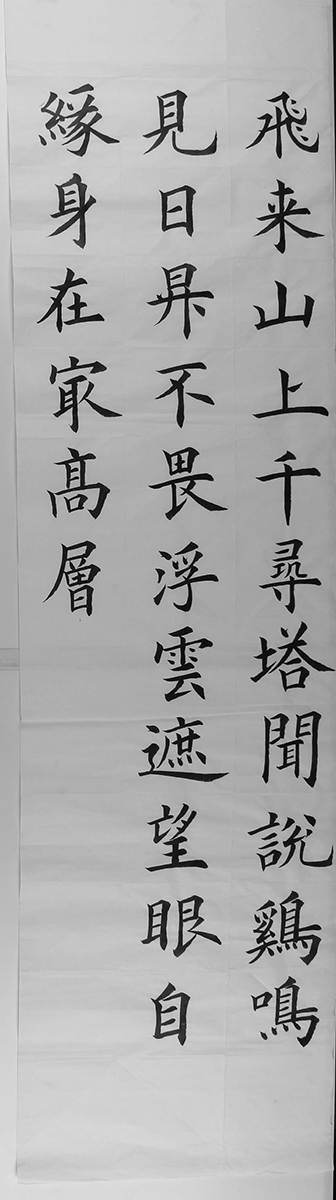 飛来山上千尋塔聞說鷄鳴
見日昇不畏浮雲遮望眼自
緣身在冣髙層